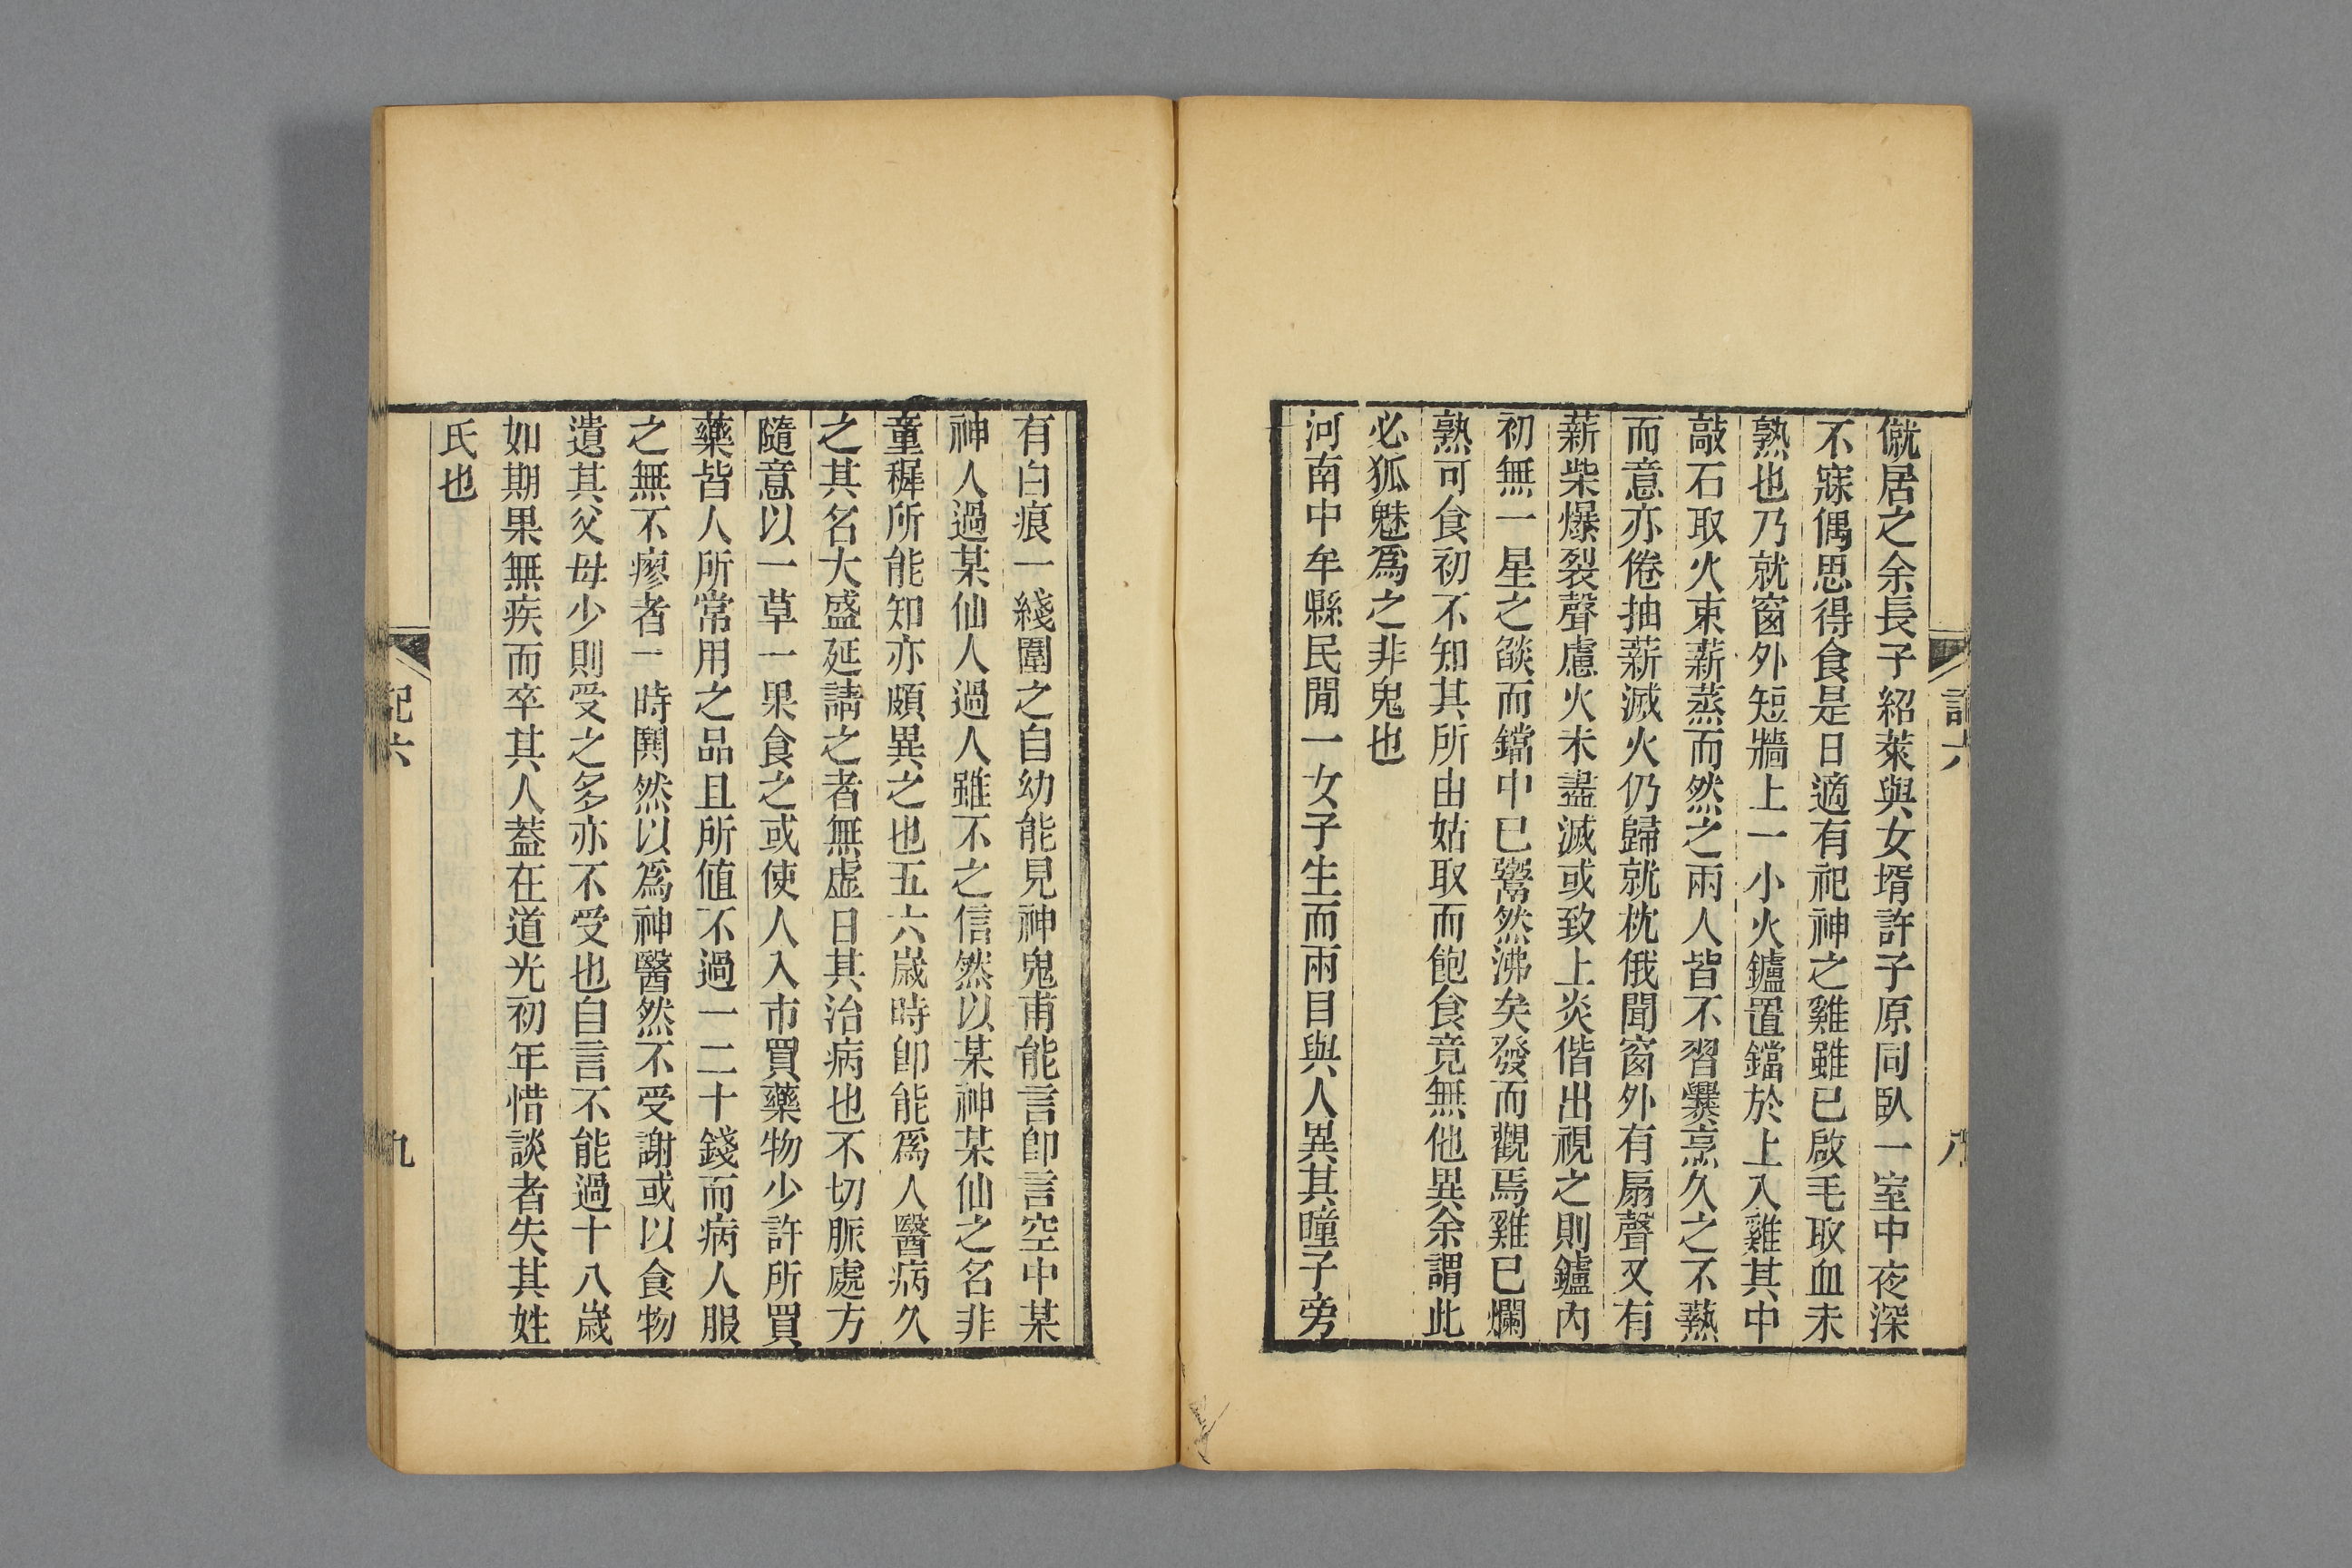 僦居之余長子紹萊與女壻許子原同臥一室中夜深
不寐偶思得食是日適有祀神之雞雖已啟毛取血未
熟也乃就窗外短牆上一小火鑪置鐺於上入雞其中
敲石取火束薪蒸而然之兩人皆不習爨烹久之不熱
而意亦倦抽薪滅火仍歸就枕俄聞窗外有扇聲又有
薪柴爆裂聲慮火未盡滅或致上炎偕出視之則鑪內
初無一星之燄而鐺中已鬻然沸矣發而觀焉雞已爛
熟可食初不知其所由姑取而飽食竟無他異余謂此
必狐魅爲之非鬼也
河南中牟縣民閒一女子生而兩目與人異其瞳子旁
記六
八
有白痕一綫圍之自幼能見神鬼甫能言卽言空中某
神人過某仙人過人雖不之信然以某神某仙之名非
童穉所能知亦頗異之也五六歲時卽能爲人醫病久
之其名大盛延請之者無虛日其治病也不切脈處方
隨意以一草一果食之或使人入市買藥物少許所買
藥皆人所常用之品且所値不過一二十錢而病人服
之無不瘳者一時鬨然以爲神醫然不受謝或以食物
遺其父母少則受之多亦不受也自言不能過十八歲
如期果無疾而卒其人蓋在道光初年惜談者失其姓
氏也
記六
九